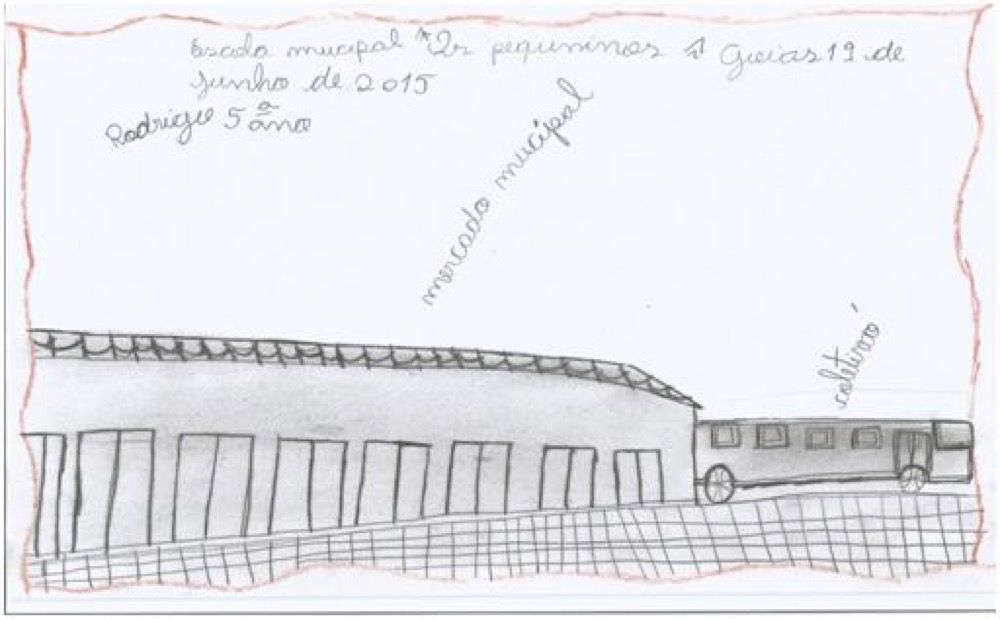 Escada mucipal "Os pequuninos" Goias 19 de
Junho de 2015
Rodrigue 5ª ano
mercado mucipal